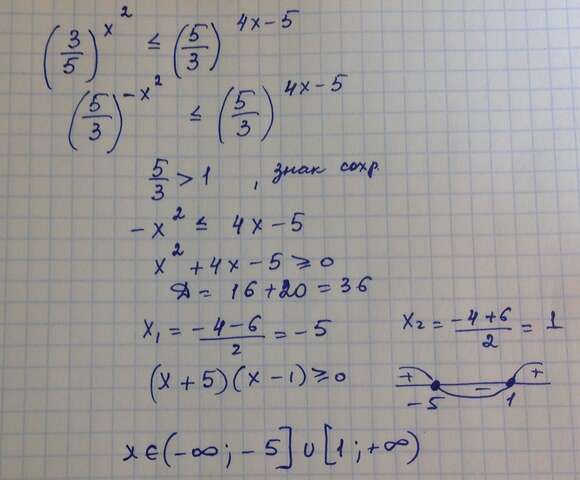 (3/5)^x² ≤ (5/3)^4x-5
(5/3)^-x² ≤ (5/3)^4x-5
5/3 > 1 , знак сохр.
-x² ≤ 4x-5
x² + 4x - 5 ≥ 0
D = 16 + 20 = 36
x₁ = (-4-6)/2 = -5 x₂ = (-4+6)/2 = 1
(x+5)(x-1) ≥ 0 + - +
-5 1
x ∈ (-∞; -5] ∪ [1; +∞)